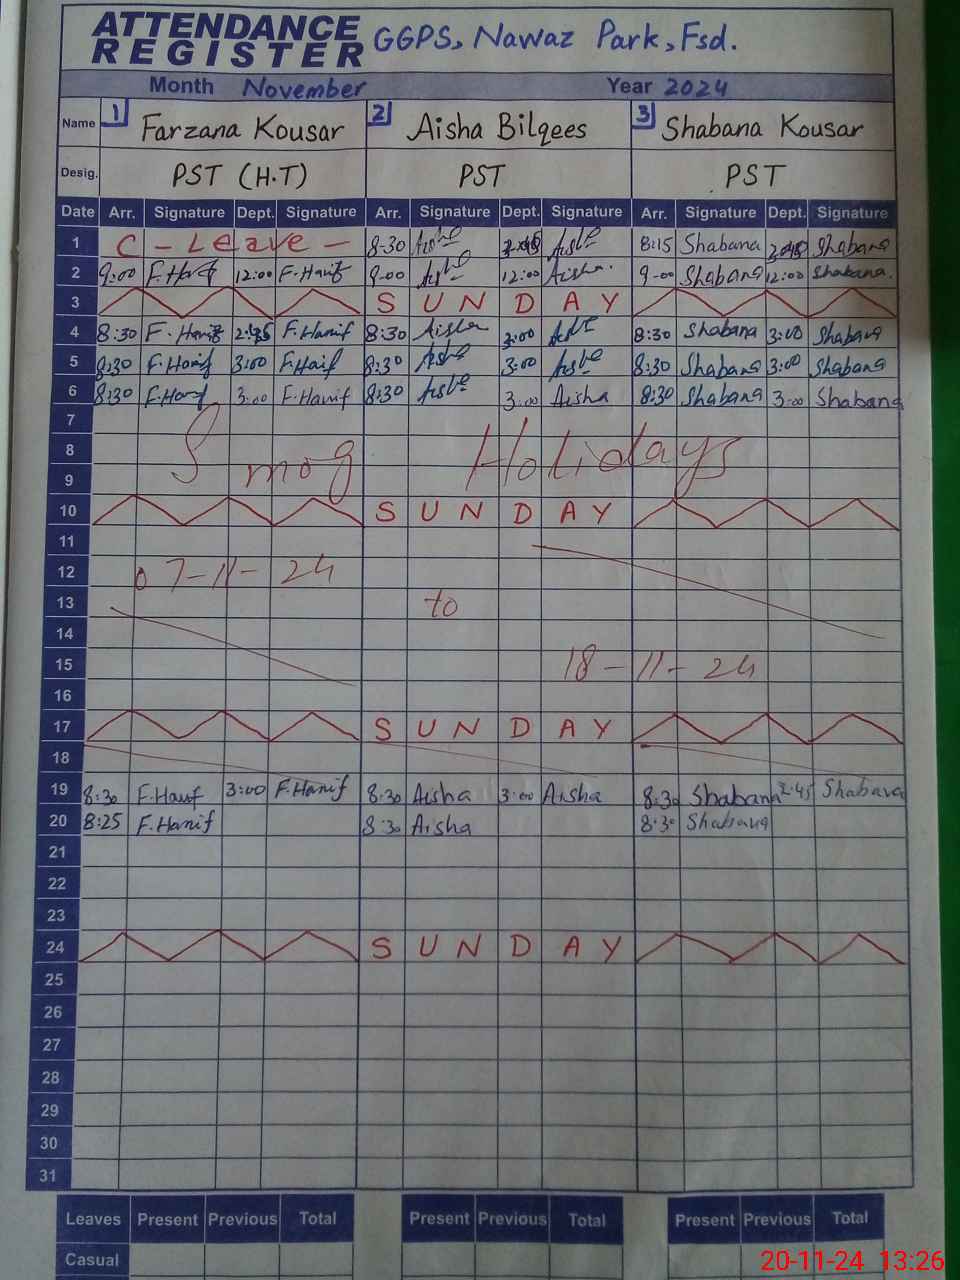 ATTENDANCE REGISTER GGPS, Nawaz Park, Fsd.
Month November Year 2024
Name 1 Farzana Kousar 2 Aisha Bilqees 3 Shabana Kousar
Desig. PST (H.T) PST PST
Date Arr. Signature Dept. Signature Arr. Signature Dept. Signature Arr. Signature Dept. Signature
1 C - Leave - 8-30 Aisha 2:45 Aisha 8:15 Shabana 2:45 Shabana
2 9:00 F.Hanif 12:00 F.Hanif 9-00 Aisha 12:00 Aisha. 9-00 Shabana 12:00 Shabana.
3 SUNDAY
4 8:30 F.Hanif F.Hanif 8:30 Aisha 3:00 Aisha 8:30 Shabana 3:00 Shabana
5 8:30 F.Hanif 3:00 F.Hanif 8:30 Aisha 3:00 Aisha 8:30 Shabana 3:00 Shabana
6 8:30 F.Hanif 3:00 F.Hanif 8:30 Aisha 3:00 Aisha 8:30 Shabana 3:00 Shabana
7
8 Smog Holidays
9
10 SUNDAY
11
12 07-11-24
13 to
14
15 18-11-24
16
17 SUNDAY
18
19 8:30 F.Hanif 3:00 F.Hanif 8:30 Aisha 3:00 Aisha 8:30 Shabana 2:45 Shabana
20 8:25 F.Hanif 8:30 Aisha 8:30 Shabana
21
22
23
24 SUNDAY
25
26
27
28
29
30
31
Leaves Present Previous Total Present Previous Total Present Previous Total
Casual
20-11-24 13:26